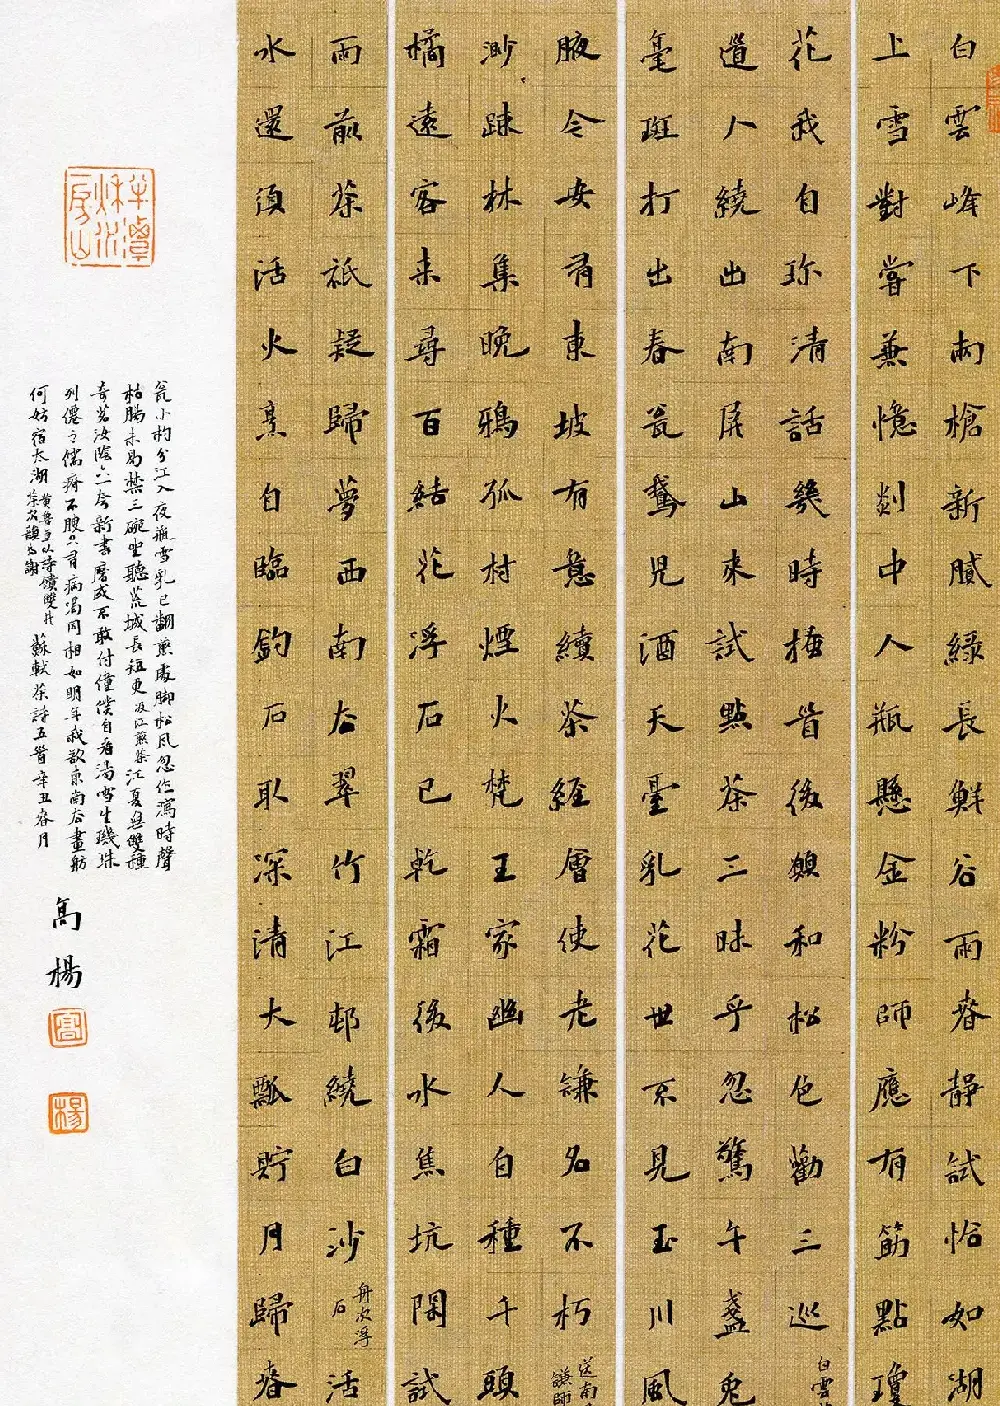 白雲峰下兩槍新膩綠長鮮谷雨春靜試恰如湖
上雪對嘗兼憶剡中人瓶懸金粉師應有筯點瓊
花我自珍清話幾時搔首後願和松色勸三巡 白雲
道人繞出南屏山來試點茶三昧手忽驚午盞兔
毫斑打出春瓮鵝兒酒天臺乳花世不見玉川風
腋今安有東坡有意續茶經層使老謙名不朽 送南 謙師
渺踈林集晚鴉孤村煙火梵王家幽人自種千頭
橘遠客来尋百結花浮石已乾霜後水焦坑閑試
雨前茶祇疑歸夢西南去翠竹江邨繞白沙 舟次浮石 活
水還須活火烹自臨釣石取深清大瓢貯月歸春
瓮小杓分江入夜瓶雪乳已翻煎處脚松風忽作瀉時聲
枯腸未易禁三碗坐聽荒城長短更 汲江煎茶 江夏無雙種
奇茗汝陰六一夸新書磨成不敢付僮僕自看湯雪生璣珠
列僊之儒瘠不腴只有病渴同相如明年我欲東南去畫舫
何妨宿太湖 黃魯直以詩饋雙井茶次韻為謝 蘇軾茶詩五首辛丑春月
高楊
高
楊